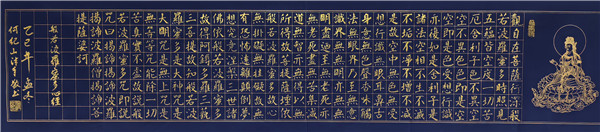 觀自在菩薩行深般
若波羅蜜多時照見
五蘊皆空度一切苦
厄舍利子色不異空
空不異色色即是空
空即是色受想行識
亦復如是舍利子是
諸法空相不生不滅
不垢不淨不增不減
是故空中無色無受
想行識無眼耳鼻舌
身意無色聲香味觸
法無眼界乃至無意
識界無無明亦無無
明盡乃至無老死亦
無老死盡無苦集滅
道無智亦無得以無
所得故菩提薩埵依
般若波羅蜜多故心
無罣礙無罣礙故無
有恐怖遠離顛倒夢
想究竟涅槃三世諸
佛依般若波羅蜜多
故得阿耨多羅三藐
三菩提故知般若波
羅蜜多是大神咒是
大明咒是無上咒是
無等等咒能除一切
苦真實不虛故說般
若波羅蜜多咒即說
咒曰揭諦揭諦波羅
揭諦波羅僧揭諦菩
提薩婆訶
般若波羅蜜多心經
乙巳年孟冬